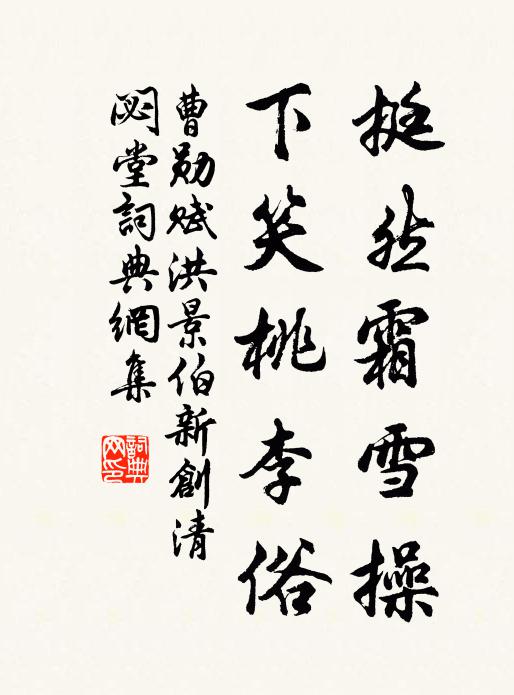 挺然霜雪操
下笑桃李俗
曹勛賦洪景伯新創清
閟堂詞典網集
詞典网印